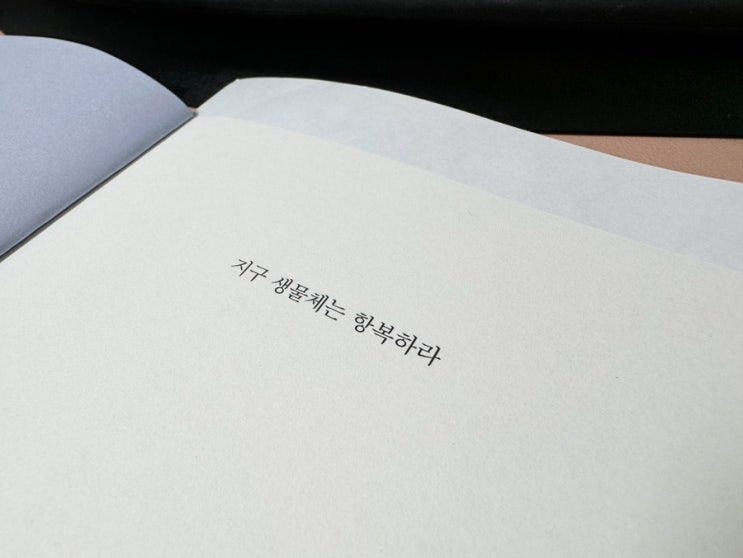 지구 생물체는 항복하라